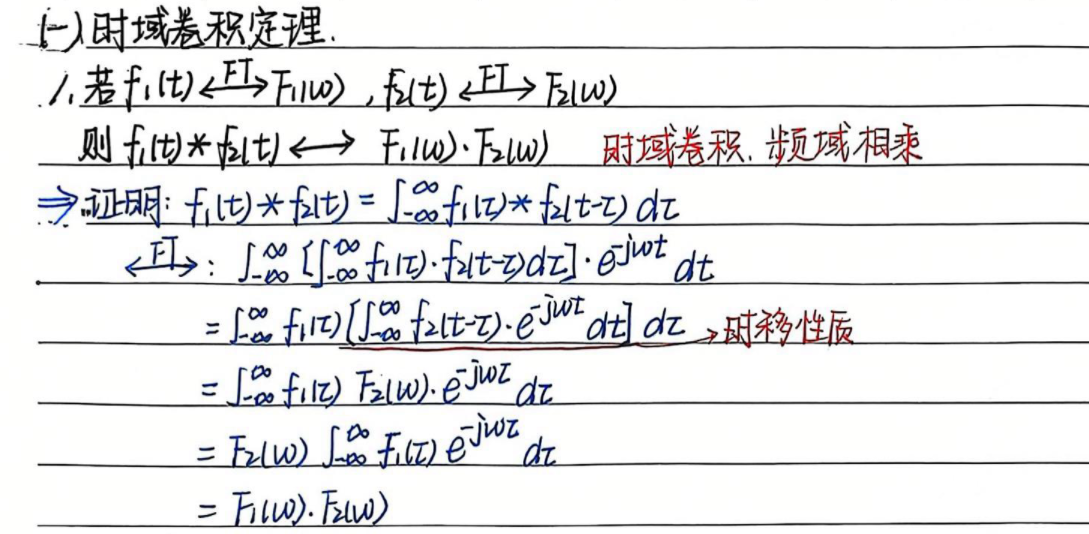 (一)时域卷积定理.
1. 若 f₁(t) ⟷(FT) F₁(ω) , f₂(t) ⟷(FT) F₂(ω)
则 f₁(t)*f₂(t) ⟷ F₁(ω)·F₂(ω) 时域卷积.频域相乘
⇒证明: f₁(t)*f₂(t) = ∫_{-∞}^{∞} f₁(τ)*f₂(t-τ) dτ
⟷(FT) : ∫_{-∞}^{∞} [∫_{-∞}^{∞} f₁(τ)·f₂(t-τ)dτ]·e^{-jωt} dt
= ∫_{-∞}^{∞} f₁(τ)[∫_{-∞}^{∞} f₂(t-τ)·e^{-jωt} dt] dτ →时移性质
= ∫_{-∞}^{∞} f₁(τ) F₂(ω)·e^{-jωτ} dτ
= F₂(ω) ∫_{-∞}^{∞} f₁(τ) e^{-jωτ} dτ
= F₁(ω)·F₂(ω)